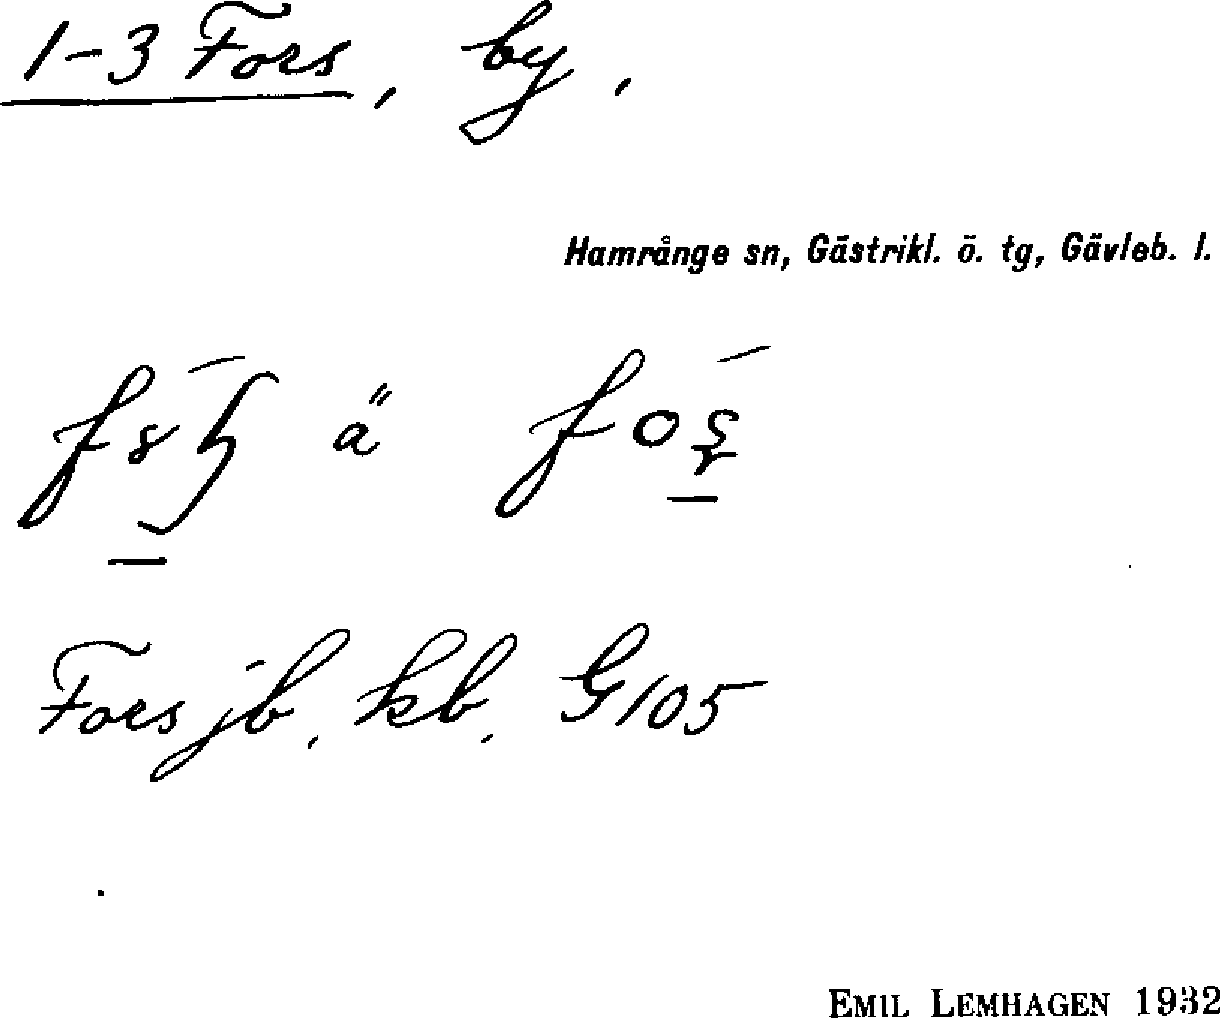 1-3 Fors, by.
Hamrånge sn, Gästrikl. ö. tg, Gävleb. l.
ä
Fors jb, kb, G105
EMIL LEMHAGEN 1932